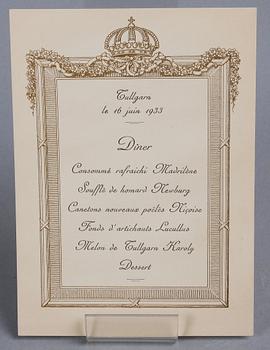 Tullgarn
le 16 juin 1933
Dîner
Consommé rafraichi Madrilène
Soufflé de homard Newburg
Canetons nouveaux poëlés Niçoise
Fonds d'artichauts Lucullus
Melon de Tullgarn Karoly
Dessert